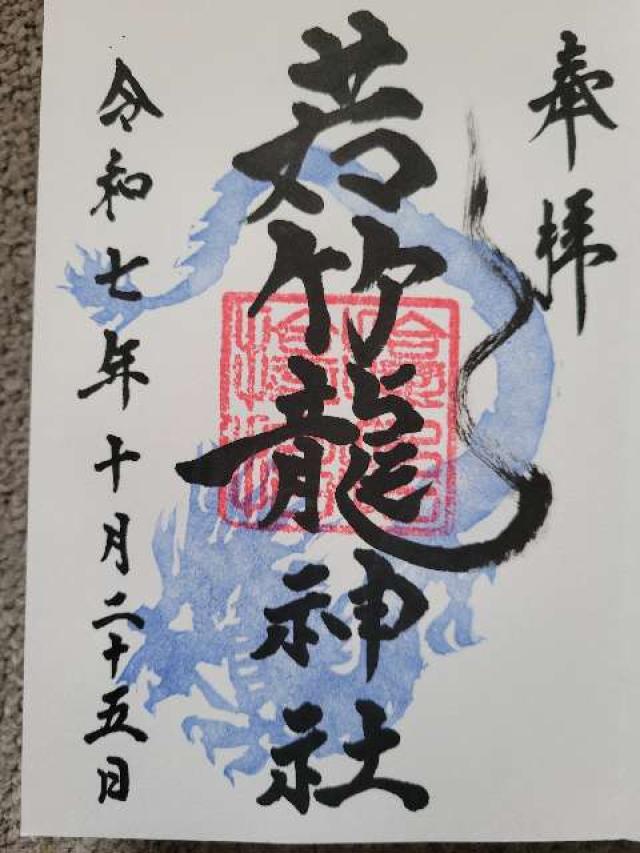 奉拝
若竹龍神社
令和七年十月二十五日